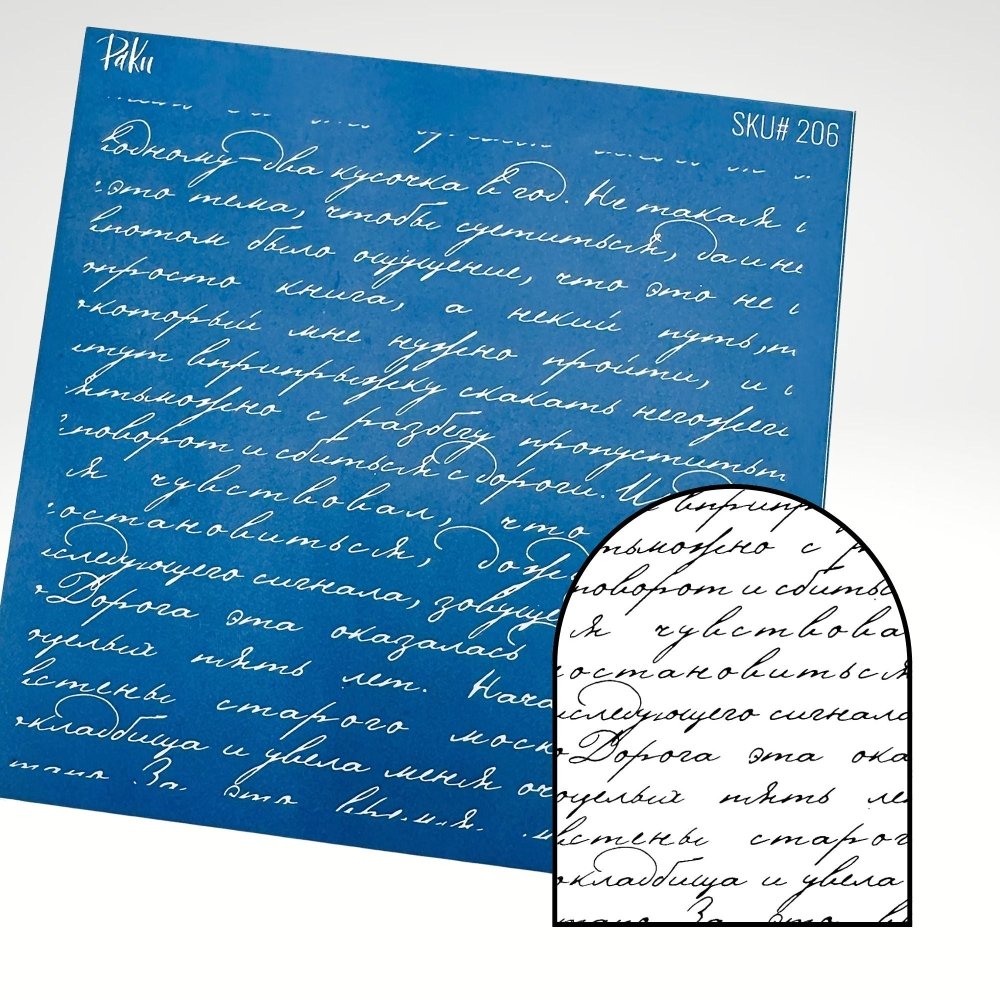 Raku
SKU# 206
одному-два кусочка в год. Не такая
это тема, чтобы суетиться, да и не
потом было ощущение, что это не
просто книга, а некий путь,
который мне нужно пройти, и
тут вприпрыжку скакать негоже
можно с разбегу пропустить
поворот и сбиться с дороги. И
я чувствовал, что
остановиться,
следующего сигнала,
Дорога эта оказалась
целых пять лет.
стены старого
кладбища и увела меня
За это время
можно с
поворот и сбитьс
я чувствова
остановиться
следующего сигнала
Дорога эта ока
целых пять ле
стены старог
кладбища и увела
За это